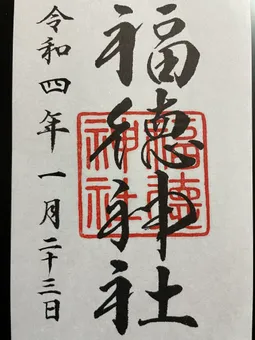 福徳神社
福徳神社
令和四年一月二十三日